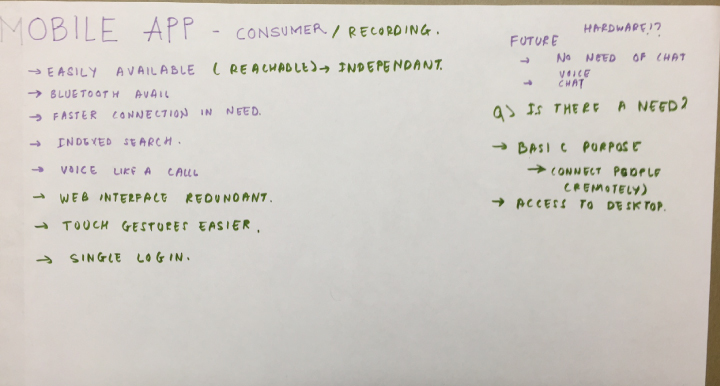 MOBILE APP - CONSUMER / RECORDING.
→ EASILY AVAILABLE (REACHABLE) → INDEPENDANT.
→ BLUETOOTH AVAIL
→ FASTER CONNECTION IN NEED.
→ INDEXED SEARCH.
→ VOICE LIKE A CALL
→ WEB INTERFACE REDUNDANT.
→ TOUCH GESTURES EASIER.
→ SINGLE LOGIN.
HARDWARE!?
FUTURE
→ NO NEED OF CHAT
VOICE
→ CHAT
Q) IS THERE A NEED?
→ BASIC PURPOSE
→ CONNECT PEOPLE
(REMOTELY)
→ ACCESS TO DESKTOP.